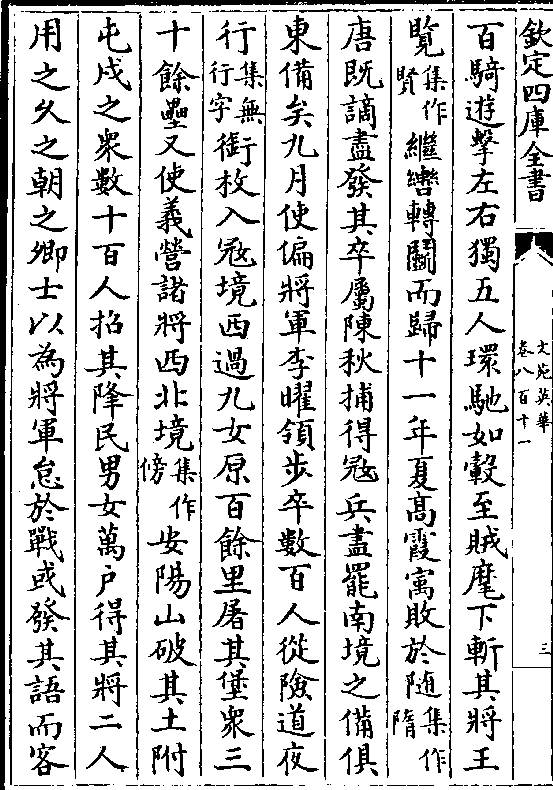 欽定四庫全書
文苑英華
卷八百十一
三
百騎遊擊左右獨五人環馳如轂至賊麾下斬其將王
覧集作賢繼轡轉鬭而歸十一年夏髙霞寓敗於随集作隋
唐既謫盡發其卒屬陳秋捕得冦兵盡罷南境之備俱
東備矣九月使偏將軍李曜領步卒數百人從險道夜
行集無行字銜枚入冦境西過九女原百餘里屠其堡衆三
十餘壘又使義營諸將西北境集作傍安陽山破其土附
屯戍之衆數十百人招其降民男女萬户得其將二人
用之久之朝之卿士以為將軍怠於戰或發其語而客